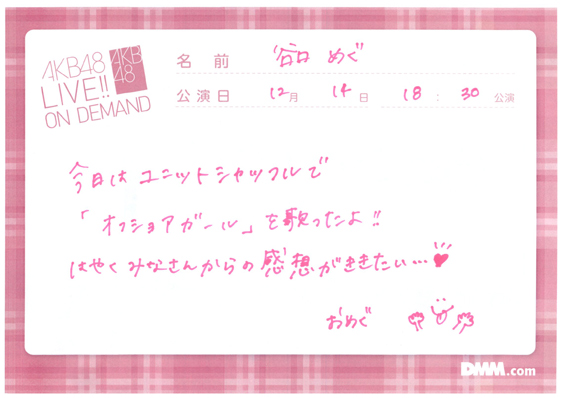 AKB48
LIVE!!
ON DEMAND
AKB
48
名前 谷口 めぐ
公演日 12月 14日 18:30公演
今日は ユニットシャッフルで
「オフショアガール」を歌ったよ!!
はやく みなさんからの感想がききたい…
おめぐ
DMM.com